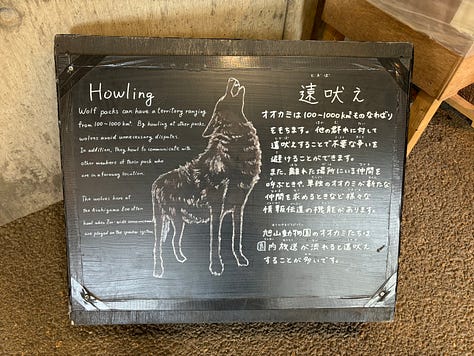 Howling
Wolf packs can have a territory ranging
from 100~1000 km². By howling at other packs,
wolves avoid unnecessary disputes.
In addition, they howl to communicate with
other members of their pack who
are in a faraway location.
The wolves here at
the Asahiyama Zoo often
howl when the announcements
are played on the speaker system.
遠吠え
オオカミは100~1000km²そのなわばり
をもちます。他の群れに対して
遠吠えすることで不要な争いを
避けることができます。
また、離れた場所にいる仲間を
呼ぶときや、単独のオオカミが新たな
仲間を求めるときなど様々な
情報伝達の機能があります。
旭山動物園のオオカミたちは
園内放送が流れると遠吠え
することが多いです。